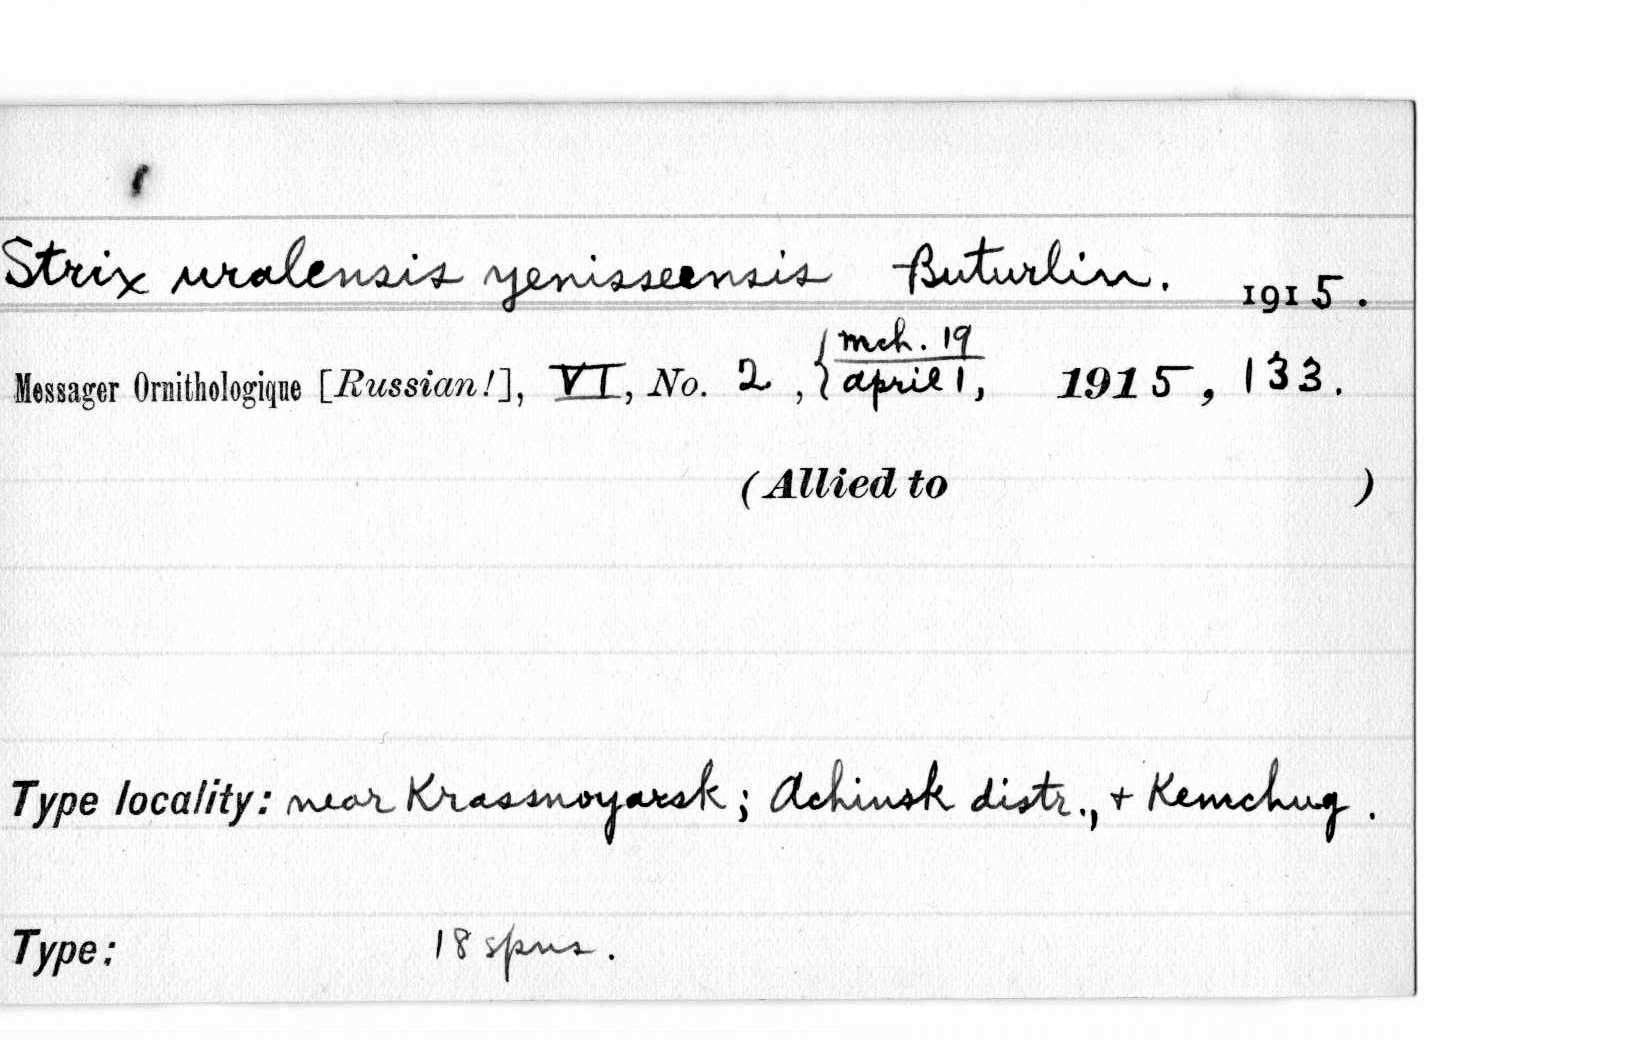 Strix uralensis yenisseensis Buturlin. 1915.
Messager Ornithologique [Russian!], VI, No. 2, { mch. 19 / april 1, 1915, 133.
(Allied to )
Type locality: near Krassnoyarsk; Achinsk distr., + Kemchug.
Type: 18 spns.